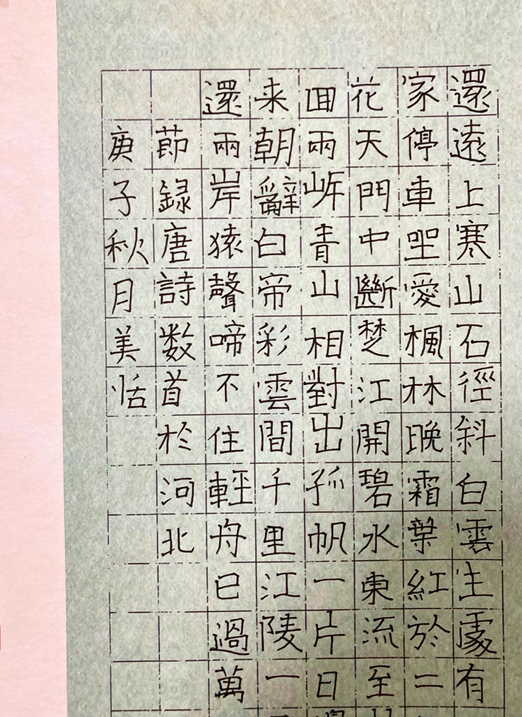 還遠上寒山石徑斜白雲生處有
家停車坐愛楓林晚霜葉紅於二
花天門中斷楚江開碧水東流至
回兩岸青山相對出孤帆一片日
来朝辭白帝彩雲間千里江陵一
還兩岸猿聲啼不住輕舟已過萬
節録唐詩数首於河北
庚子秋月美恬